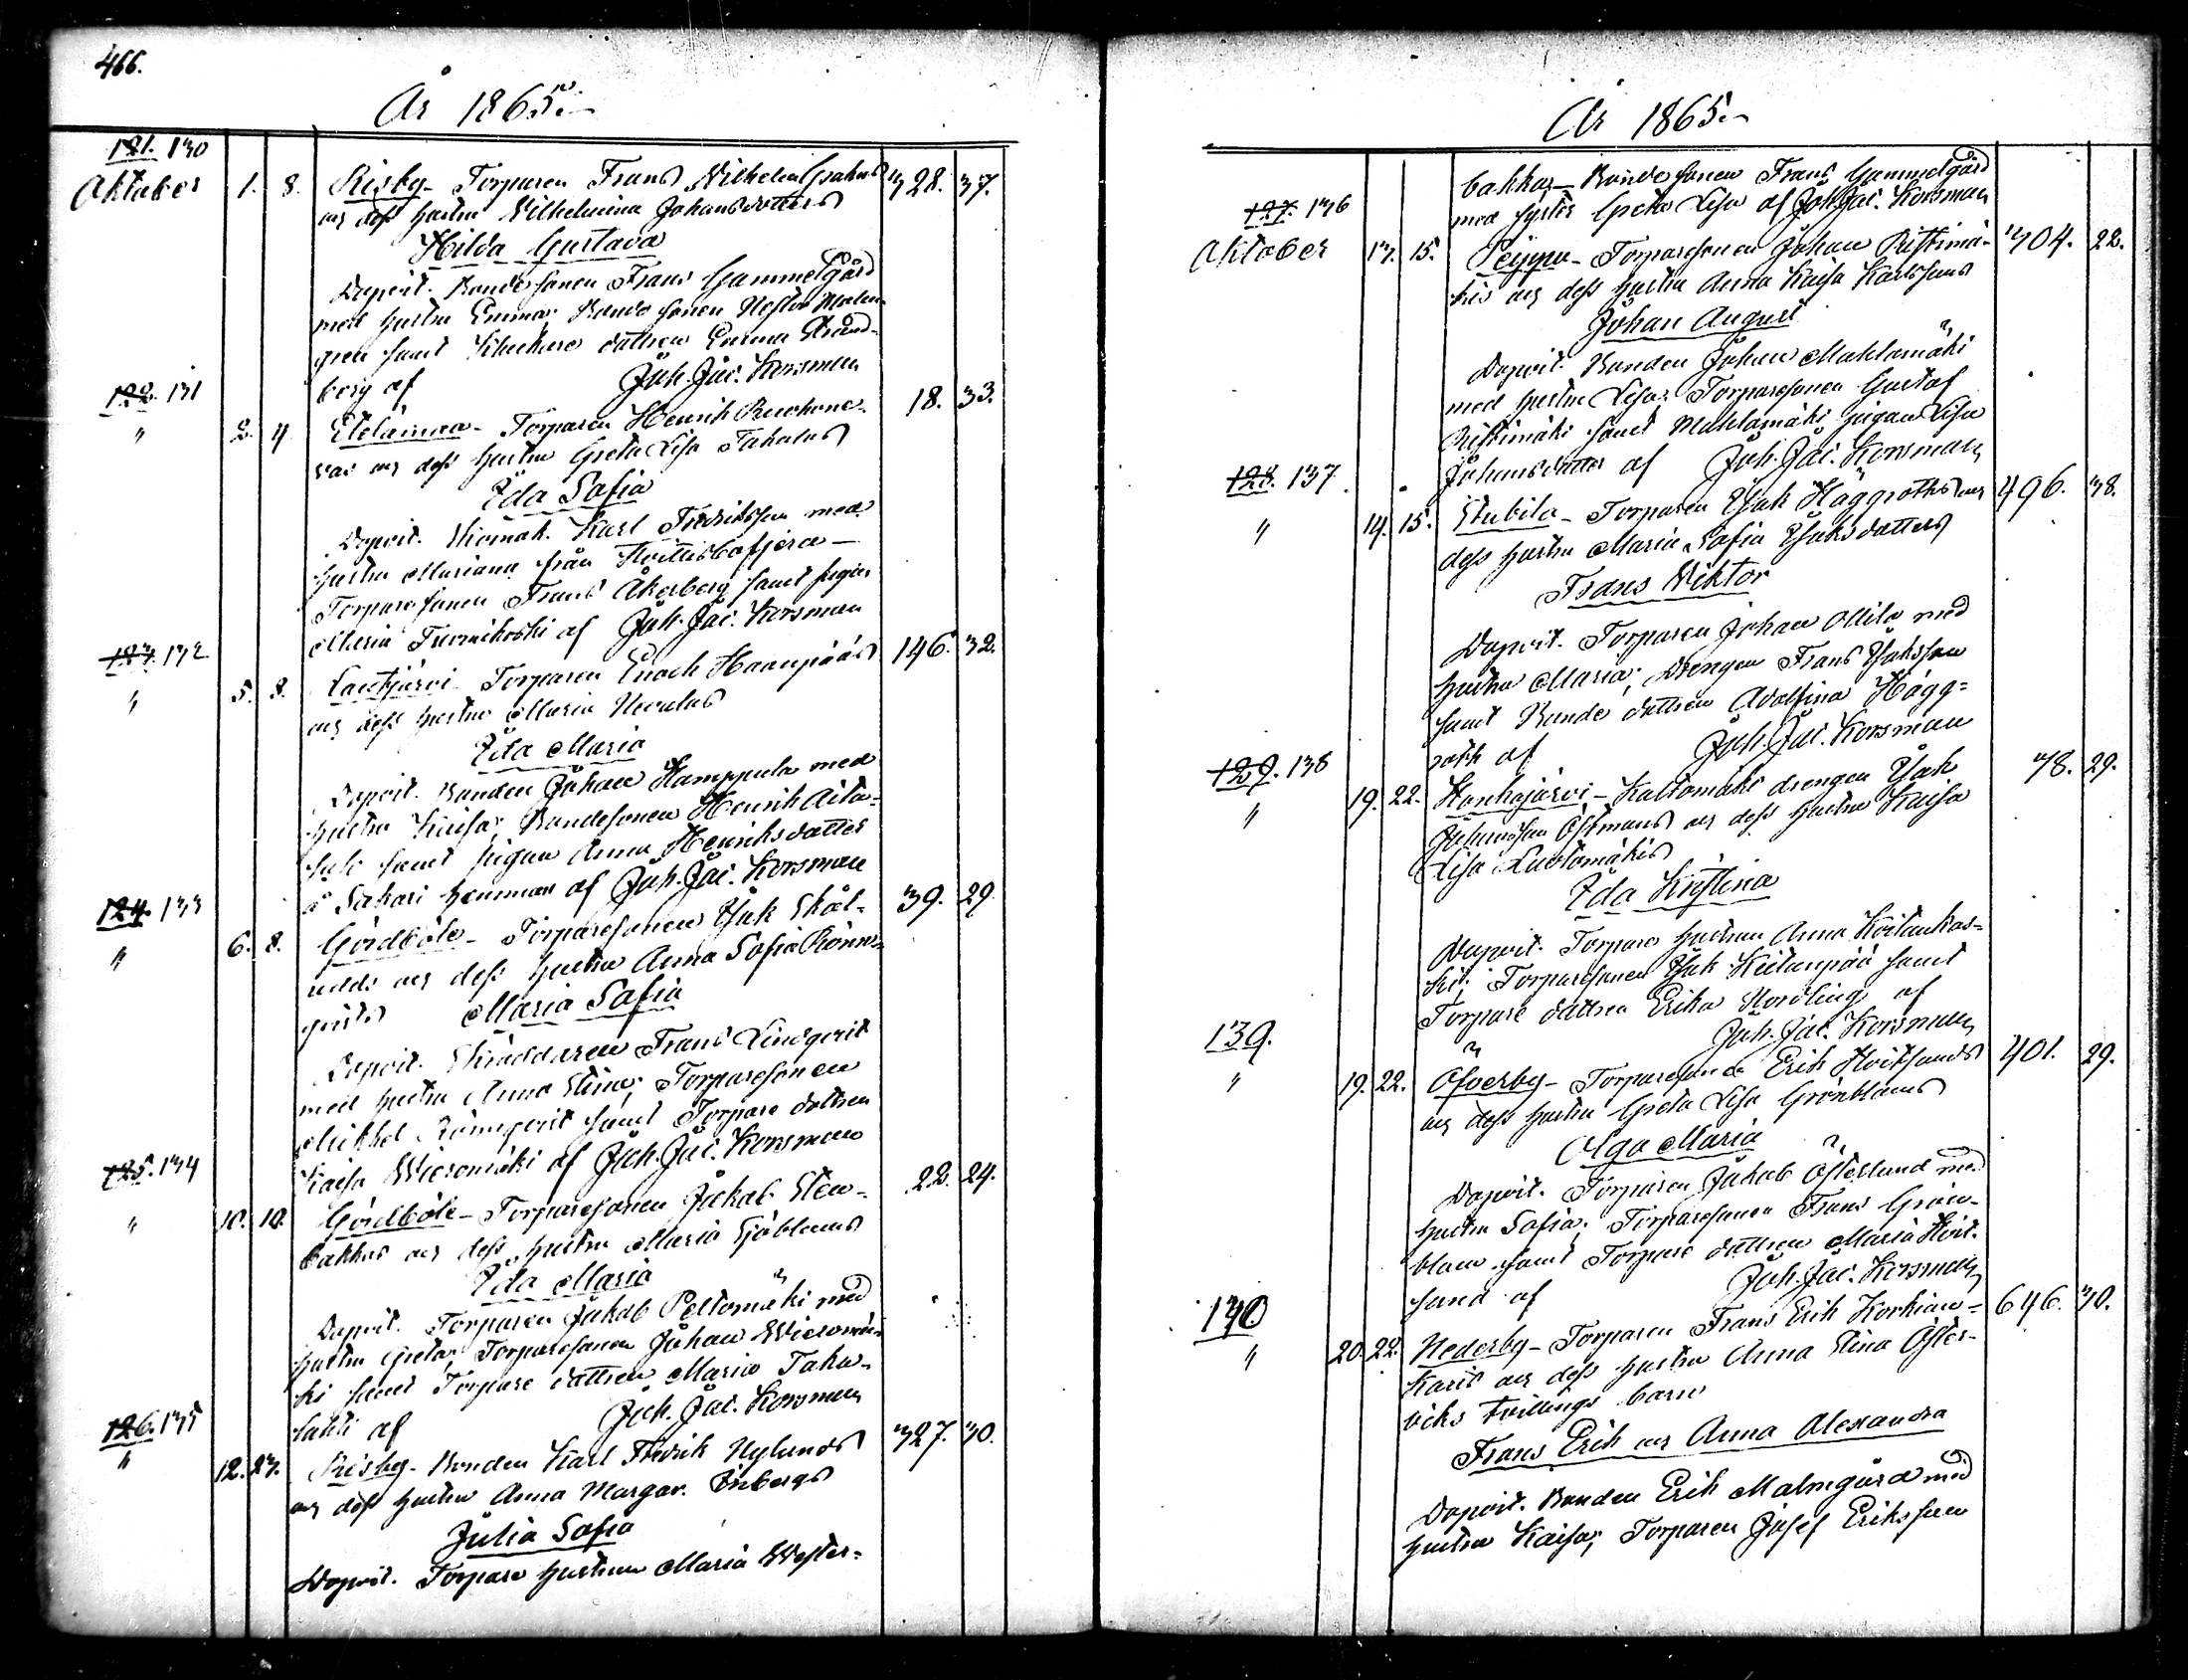 466.
År 1865.
121. 130
Oktober 1. 8. Risby - Torparen Frans Wilhelm Grahns 328. 37.
och dess hustru Wilhelmina Johansdotters
Hilda Gustava
Dopvit. Bondesonen Frans Gammelgård
med hustru Emma; Bondesonen Nestor Malm-
gren samt dottren Emma Strand-
berg af Joh. Jac. Korsman
122. 131
" 2. 4. Etelämaa - Torparen Henrik
var och dess hustru Greta Lisa Takalas 18. 33.
Ida Sofia
Dopvit. Skomak. Karl Fredriksson med
hustru Mariana från Hvittisbofjerd -
Torparesonen Frans Åkerberg samt pigan
Maria Turnikoski af Joh. Jac. Korsman
123. 132
" 5. 8. Lautjärvi - Torparen Enoch Haanpääs 146. 32.
och dess hustru Maria
Ida Maria
Dopvit. Bonden Johan Kamppula med
hustru Kaisa; Bondesonen Henrik Aito-
salo samt pigan Anna Henriksdotter
å Sakari hemman af Joh. Jac. Korsman
124. 133
" 6. 8. Gördböle - Torparesonen Isak Sköl- 39. 29.
udds och dess hustru Anna Sofia Rönn-
qvists Maria Sofia
Dopvit. Skräddaren Frans Lindqvist
med hustru Anna Stina; Torparesonen
Mikkel Rönnqvist samt Torpare dottren
Kaisa Wieromäki af Joh. Jac. Korsman
125. 134
" 10. 10. Gördböle - Torparesonen Jakob Sten- 22. 24.
backas och dess hustru Maria Sjöbloms
Ida Maria
Dopvit. Torparen Jakob Peltomäki med
hustru Greta; Torparesonen Johan Wieromä-
ki samt Torpare dottren Maria Taka-
lahti af Joh. Jac. Korsman
126. 135
" 12. 23. Risby - Bonden Karl Fredrik Nylunds 327. 30.
och dess hustru Anna Margar. Enbergs
Julia Sofia
Dopvit. Torpare hustrun Maria Wester-
År 1865.
backa - Bondesonen Frans Gammelgård
127. 136
med syster Greta Lisa af Joh. Jac. Korsman
Oktober 13. 15. Peippu - Torparesonen Johan Ristimä- 304. 22.
kis och dess hustru Anna Kaisa Karlssons
Johan August
Dopvit. Bonden Johan Mahlamäki
med hustru Lisa; Torparesonen Gustaf
Ristimäki samt Mahlamäki pigan Lisa
Johansdotter af Joh. Jac. Korsman
128. 137
" 14. 15. Stubila - Torparen Isak Häggroths och 496. 38.
dess hustru Maria Sofia Isaksdotters
Frans Wiktor
Dopvit. Torparen Johan Ollila med
hustru Maria; Drengen Frans Isaksson
samt Bonde dottren Adolfina Hägg-
roth af Joh. Jac. Korsman
129. 138
" 19. 22. Kankajärvi - Kaltomäki drengen Isak 78. 29.
Johansson Östmans och dess hustru Kaisa
Lisa Luotomäkis
Ida Kristina
Dopvit. Torpare hustrun Anna Koitankos-
ki; Torparesonen Isak Kiitanpää samt
Torpare dottren Erika Nordling af
Joh. Jac. Korsman
139.
" 19. 22. Öfverby - Torparesonen Erik Hvitsands 401. 29.
och dess hustru Greta Lisa Grönbloms
Olga Maria
Dopvit. Torparen Jakob Österlund med
hustru Sofia; Torparesonen Frans Grön-
blom samt Torpare dottren Maria Hvit-
sand af Joh. Jac. Korsman
140
" 20. 22. Nederby - Torparen Frans Erik Korkian- 646. 30.
karis och dess hustru Anna Stina Öster-
viks tvillings barn
Frans Erik och Anna Alexandra
Dopvit. Bonden Erik Malmgård med
hustru Kaisa; Torparen Josef Eriksson